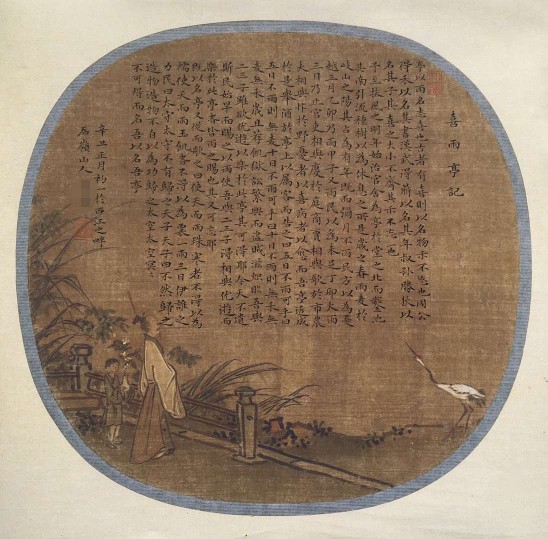 喜雨亭記
亭以雨名志喜也古者有喜則以名物示不忘也周公
得禾以名其書漢武得鼎以名其年叔孫勝狄以
名其子其喜之大小不齊其示不忘一也
予至扶風之明年始治官舍為亭於堂之北而鑿池
其南引流種樹以為休息之所是歲之春雨麥於
岐山之陽其占為有年既而彌月不雨民方以為憂
越三月乙卯乃雨甲子又雨民以為未足丁卯大雨
三日乃止官吏相與慶於庭商賈相與歌於市農
夫相與忭於野憂者以喜病者以愈而吾亭適成
於是舉酒於亭上以屬客而告之曰五日不雨可乎曰
五日不雨則無麥十日不雨可乎曰十日不雨則無禾無
麥無禾歲且荐饑獄訟繁興而盜賊滋熾則吾與
二三子雖欲優游以樂於此亭其可得耶今天不遺
斯民始旱而賜之以雨使吾與二三子得相與優游而
樂於此亭者皆雨之賜也其又可忘耶
既以名亭又從而歌之曰使天而雨珠寒者不得以為
襦使天而雨玉飢者不得以為粟一雨三日伊誰之
力民曰太守太守不有歸之天子天子曰不然歸之
造物造物不自以為功歸之太空太空冥冥
不可得而名吾以名吾亭
辛丑正月初一於江之畔
嶺山人